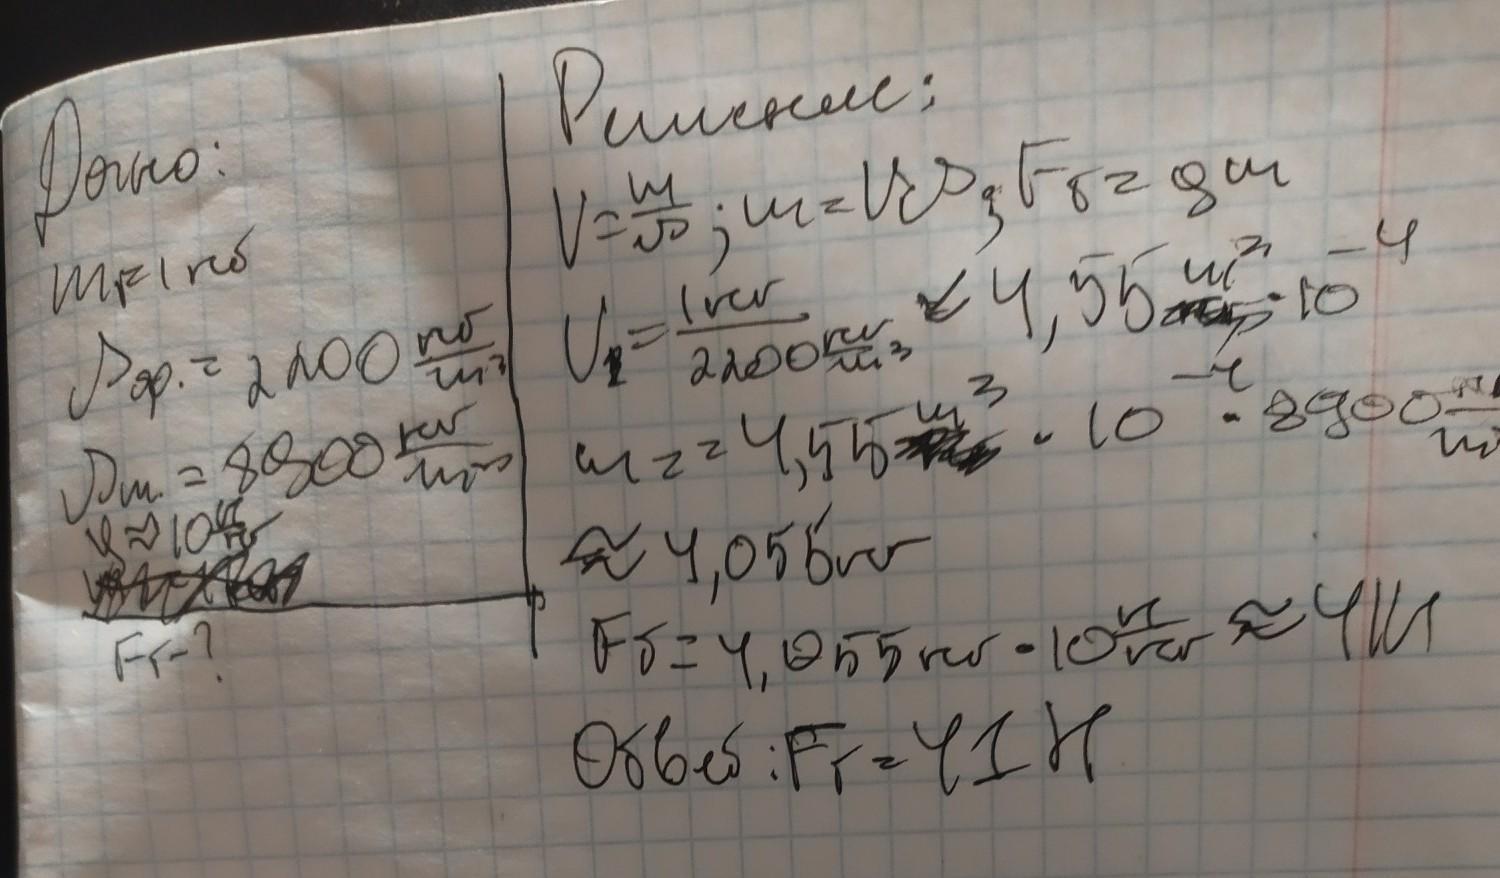 Дано:
m₁=1кг
ρφ.=2200 кг/м³
ρм.=8900 кг/м³
g≈10 Н/кг
Fт-?
Решение:
V=m/ρ; m=Vρ; Fт=gm
V₁=1кг/2200 кг/м³ ≈ 4,55 м³·10⁻⁴
m₂=4,55 м³·10⁻⁴·8900 кг/м³
≈4,055кг
Fт=4,055кг·10 Н/кг≈41Н
Ответ: Fт=41Н